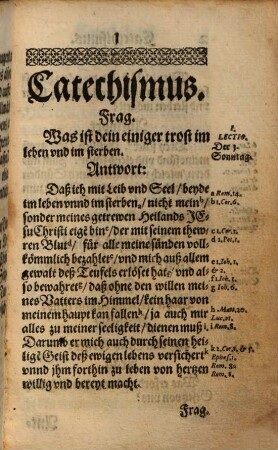 1
Catechismus.
Frag.
Was ist dein einiger trost im
leben vnd im sterben.
Antwort:
Daß ich mit Leib vnd Seel / beyde
im leben vnnd im sterben, nicht mein
sonder meines getrewen Heilands JE-
su Christi eigē bin der mit seinem thew-
ren Blut / für alle meine sünden voll-
kömmlich bezahlet / vnd mich auß allem
gewalt deß Teufels erlöset hat, vnd al-
so bewahret / daß ohne den willen mei-
nes Vatters im Himmel / kein haar von
meinem haupt kan fallen / ja auch mir
alles zu meiner seeligkeit / dienen muß
Darumb er mich auch durch seinen hei-
ligē Geist deß ewigen lebens versichert
vnnd jhm forthin zu leben von hertzen
willig vnd bereyt macht.
Frag.
1.
LECTIO.
Der 1.
Sonntag.
a Rom. 14.
b 1. Cor. 6.
c 1. Cor. 3.
d 1. Pet. 1.
e 1. Joh. 1.
& 2.
f 1. Joh. 3.
g Joh. 6.
h Matt. 10.
Luc. 21.
i Rom. 8.
k 2. Cor. 1. & 5
Ephes. 1.
Rom. 8.